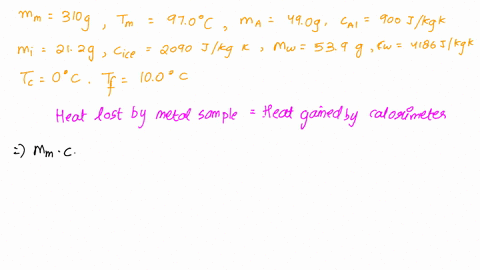 m_m = 310g , T_m = 97.0°C , m_A = 49.0g , c_Al = 900 J/kgK
m_i = 21.2g , C_ice = 2090 J/kg K , M_w = 53.9 g , c_w = 4186 J/kgK
T_c = 0°C . T_f = 10.0°C
Heat lost by metal sample = Heat gained by calorimeter
=) M_m · C.